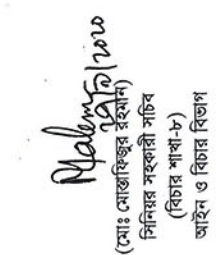 (মোঃ মোস্তাফিজুর রহমান)
সিনিয়র সহকারী সচিব
(বিচার শাখা-৮)
আইন ও বিচার বিভাগ